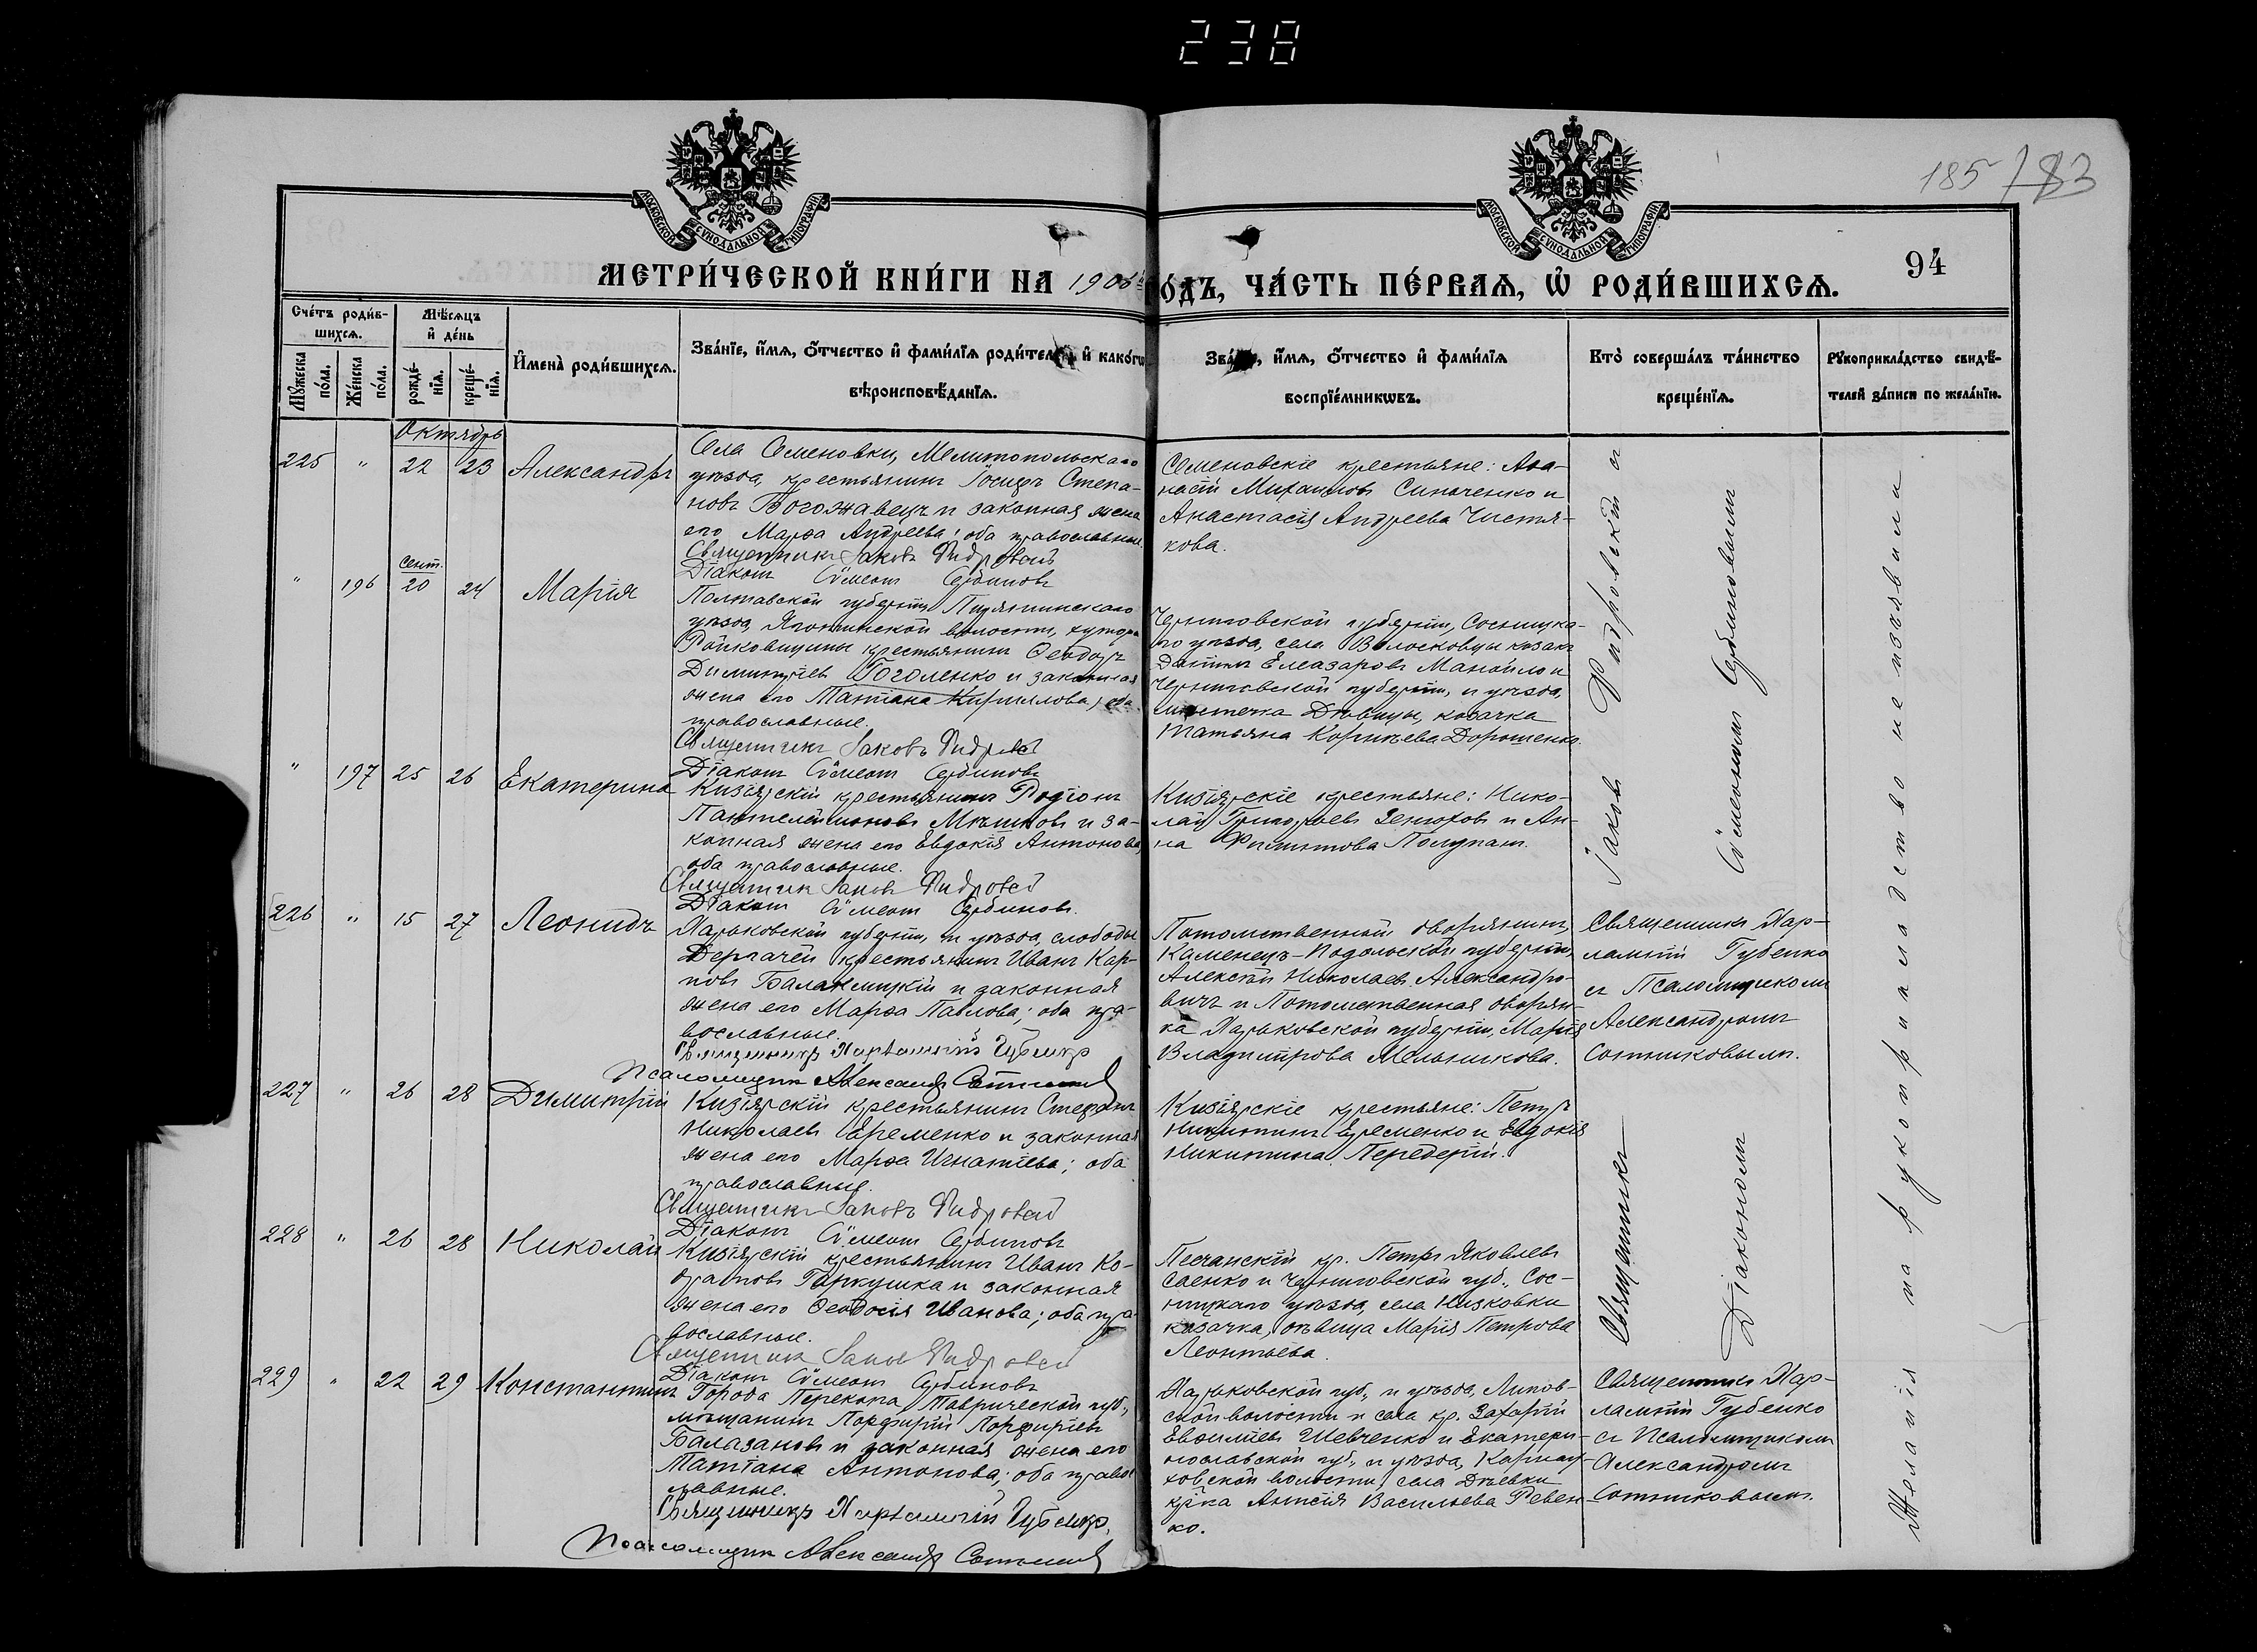 238
185 183
94
МОСКОВСКОЙ СѴНОДАЛЬНОЙ ТИПОГРАФІИ
МОСКОВСКОЙ СѴНОДАЛЬНОЙ ТИПОГРАФІИ
МЕТРИ́ЧЕСКОЙ КНИ́ГИ НА 190 ГО́ДЪ, ЧА́СТЬ ПЕ́РВАѦ, Ѡ҆ РОДИ́ВШИХСѦ.
Сче́тъ роди́в-
шихсѧ.
Мꙋжеска по́ла.
Же́нска по́ла.
Мѣ́сѧцъ
и҆ де́нь
рожде́-
нїѧ.
креще́-
нїѧ.
И҆мена̀ роди́вшихсѧ.
Зва́нїе, и҆́мѧ, ѻ҆́тчество и҆ фамѝлїѧ роди́телей, и҆ како́гѡ
вѣроисповѣ́данїѧ.
Зва́нїе, и҆́мѧ, ѻ҆́тчество и҆ фамѝлїѧ
воспрїе́мникѡвъ.
Кто̀ соверша́лъ та́инство
креще́нїѧ.
Рꙋкоприкла́дство свидѣ́-
телей за́писи по жела́нїю.
Октябрь
225 " 22 23 Александръ
Села Семеновки, Мелитопольскаго
уѣзда, крестьянинъ Іосифъ Степа-
новъ Богожавецъ и законная жена
его Марѳа Андреева; оба православные.
Священникъ Іаковъ
Діаконъ Сѵмеонъ Сербиновъ
Семеновскіе крестьяне: Аѳа-
насій Михаиловъ Синяченко и
Анастасія Андреева Чистя-
кова.
" 196 Сент. 20 24 Марія
Полтавской губерніи, Пирятинскаго
уѣзда, Яготинской волости, хутора
Райковщины крестьянинъ Ѳеодоръ
Димитріевъ Гоголенко и законная
жена его Татіана Кириллова; оба
православные.
Священникъ Іаковъ
Діаконъ Сѵмеонъ Сербиновъ
Черниговской губерніи, Сосницка-
го уѣзда, села Волосковцы козакъ
Даніилъ Елеазаровъ Манойло и
Черниговской губерніи, и уѣзда,
мѣстечка Дѣвицы, козачка
Татьяна Корнѣева Дорошенко.
" 197 25 26 Екатерина
Кизіярскій крестьянинъ Родіонъ
Пантелеймоновъ Мѣшковъ и за-
конная жена его Евдокія Антонова,
оба православные.
Священникъ Іаковъ
Діаконъ Сѵмеонъ Сербиновъ.
Кизіярскіе крестьяне: Нико-
лай Григорьевъ Зенюховъ и Ан-
на Филиппова Полупанъ.
226 " 15 27 Леонидъ
Харьковской губерніи, и уѣзда, слободы
Дергачей крестьянинъ Иванъ Кар-
повъ Балаклицкій и законная
жена его Марѳа Павлова; оба пра-
вославные.
Священникъ Харлампій Губенко
Псаломщикъ Александръ Сотниковъ
Потомственный дворянинъ,
Каменецъ-Подольской губерніи,
Алексѣй Николаевъ Александро-
вичъ и Потомственная дворян-
ка Харьковской губерніи, Марія
Владимірова Мельникова.
Священникъ Хар-
лампій Губенко
съ Псаломщикомъ
Александромъ
Сотниковымъ.
227 " 26 28 Димитрій
Кизіярскій крестьянинъ Стефанъ
Николаевъ Еременко и законная
жена его Марѳа Игнатіева; оба
православные.
Священникъ Іаковъ
Діаконъ Сѵмеонъ Сербиновъ
Кизіярскіе крестьяне: Петръ
Никитинъ Еременко и Евдокія
Никитина Передерій.
228 " 26 28 Николай
Кизіярскій крестьянинъ Иванъ Ко-
дратовъ Гаркушка и законная
жена его Ѳеодосія Иванова; оба пра-
вославные.
Священникъ Іаковъ
Діаконъ Сѵмеонъ Сербиновъ
Песчанскій кр. Петръ Яковлевъ
Саенко и Черниговской губ., Сос-
ницкаго уѣзда, села Низковки
козачка, дѣвица Марія Петрова
Леонтьева.
229 " 22 29 Константинъ
Города Перекопа, Таврической губ.,
мѣщанинъ Порфирій Порфиріевъ
Балазановъ и законная жена его
Татіана Антонова; оба правос-
лавные.
Священникъ Харлампій Губенко,
Псаломщикъ Александръ Сотниковъ
Харьковской губ., и уѣзда, Липов-
ской волости и села кр. Захарій
Евфиміевъ Шевченко и Екатери-
нославской губ., и уѣзда, Карнау-
ховской волости, села Діевки
кр-ка Анисія Васильева Ревен-
ко.
Священникъ Хар-
лампій Губенко
съ Псаломщикомъ
Александромъ
Сотниковымъ.
Священникъ Іаковъ съ
Діакономъ Сѵмеономъ Сербиновымъ
Желанія на рукоприкладство не изъявили